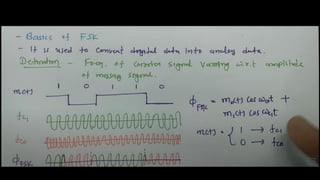 - Basics of FSK
- It is used to convert digital data into analog data.
Definition - Freq. of carrier signal varying w.r.t amplitude
of messag signal.
m(t) 1 0 1 1 0
ϕFSK = m0(t) cos ω0t +
m1(t) cos ω1t
fc1
m(t) = { 1 → fc1
0 → fc0
fc0
ϕFSK